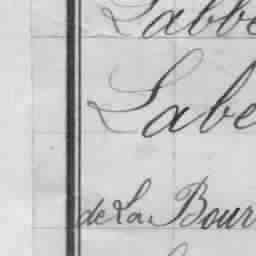 Labbe
Labe
de La Bour